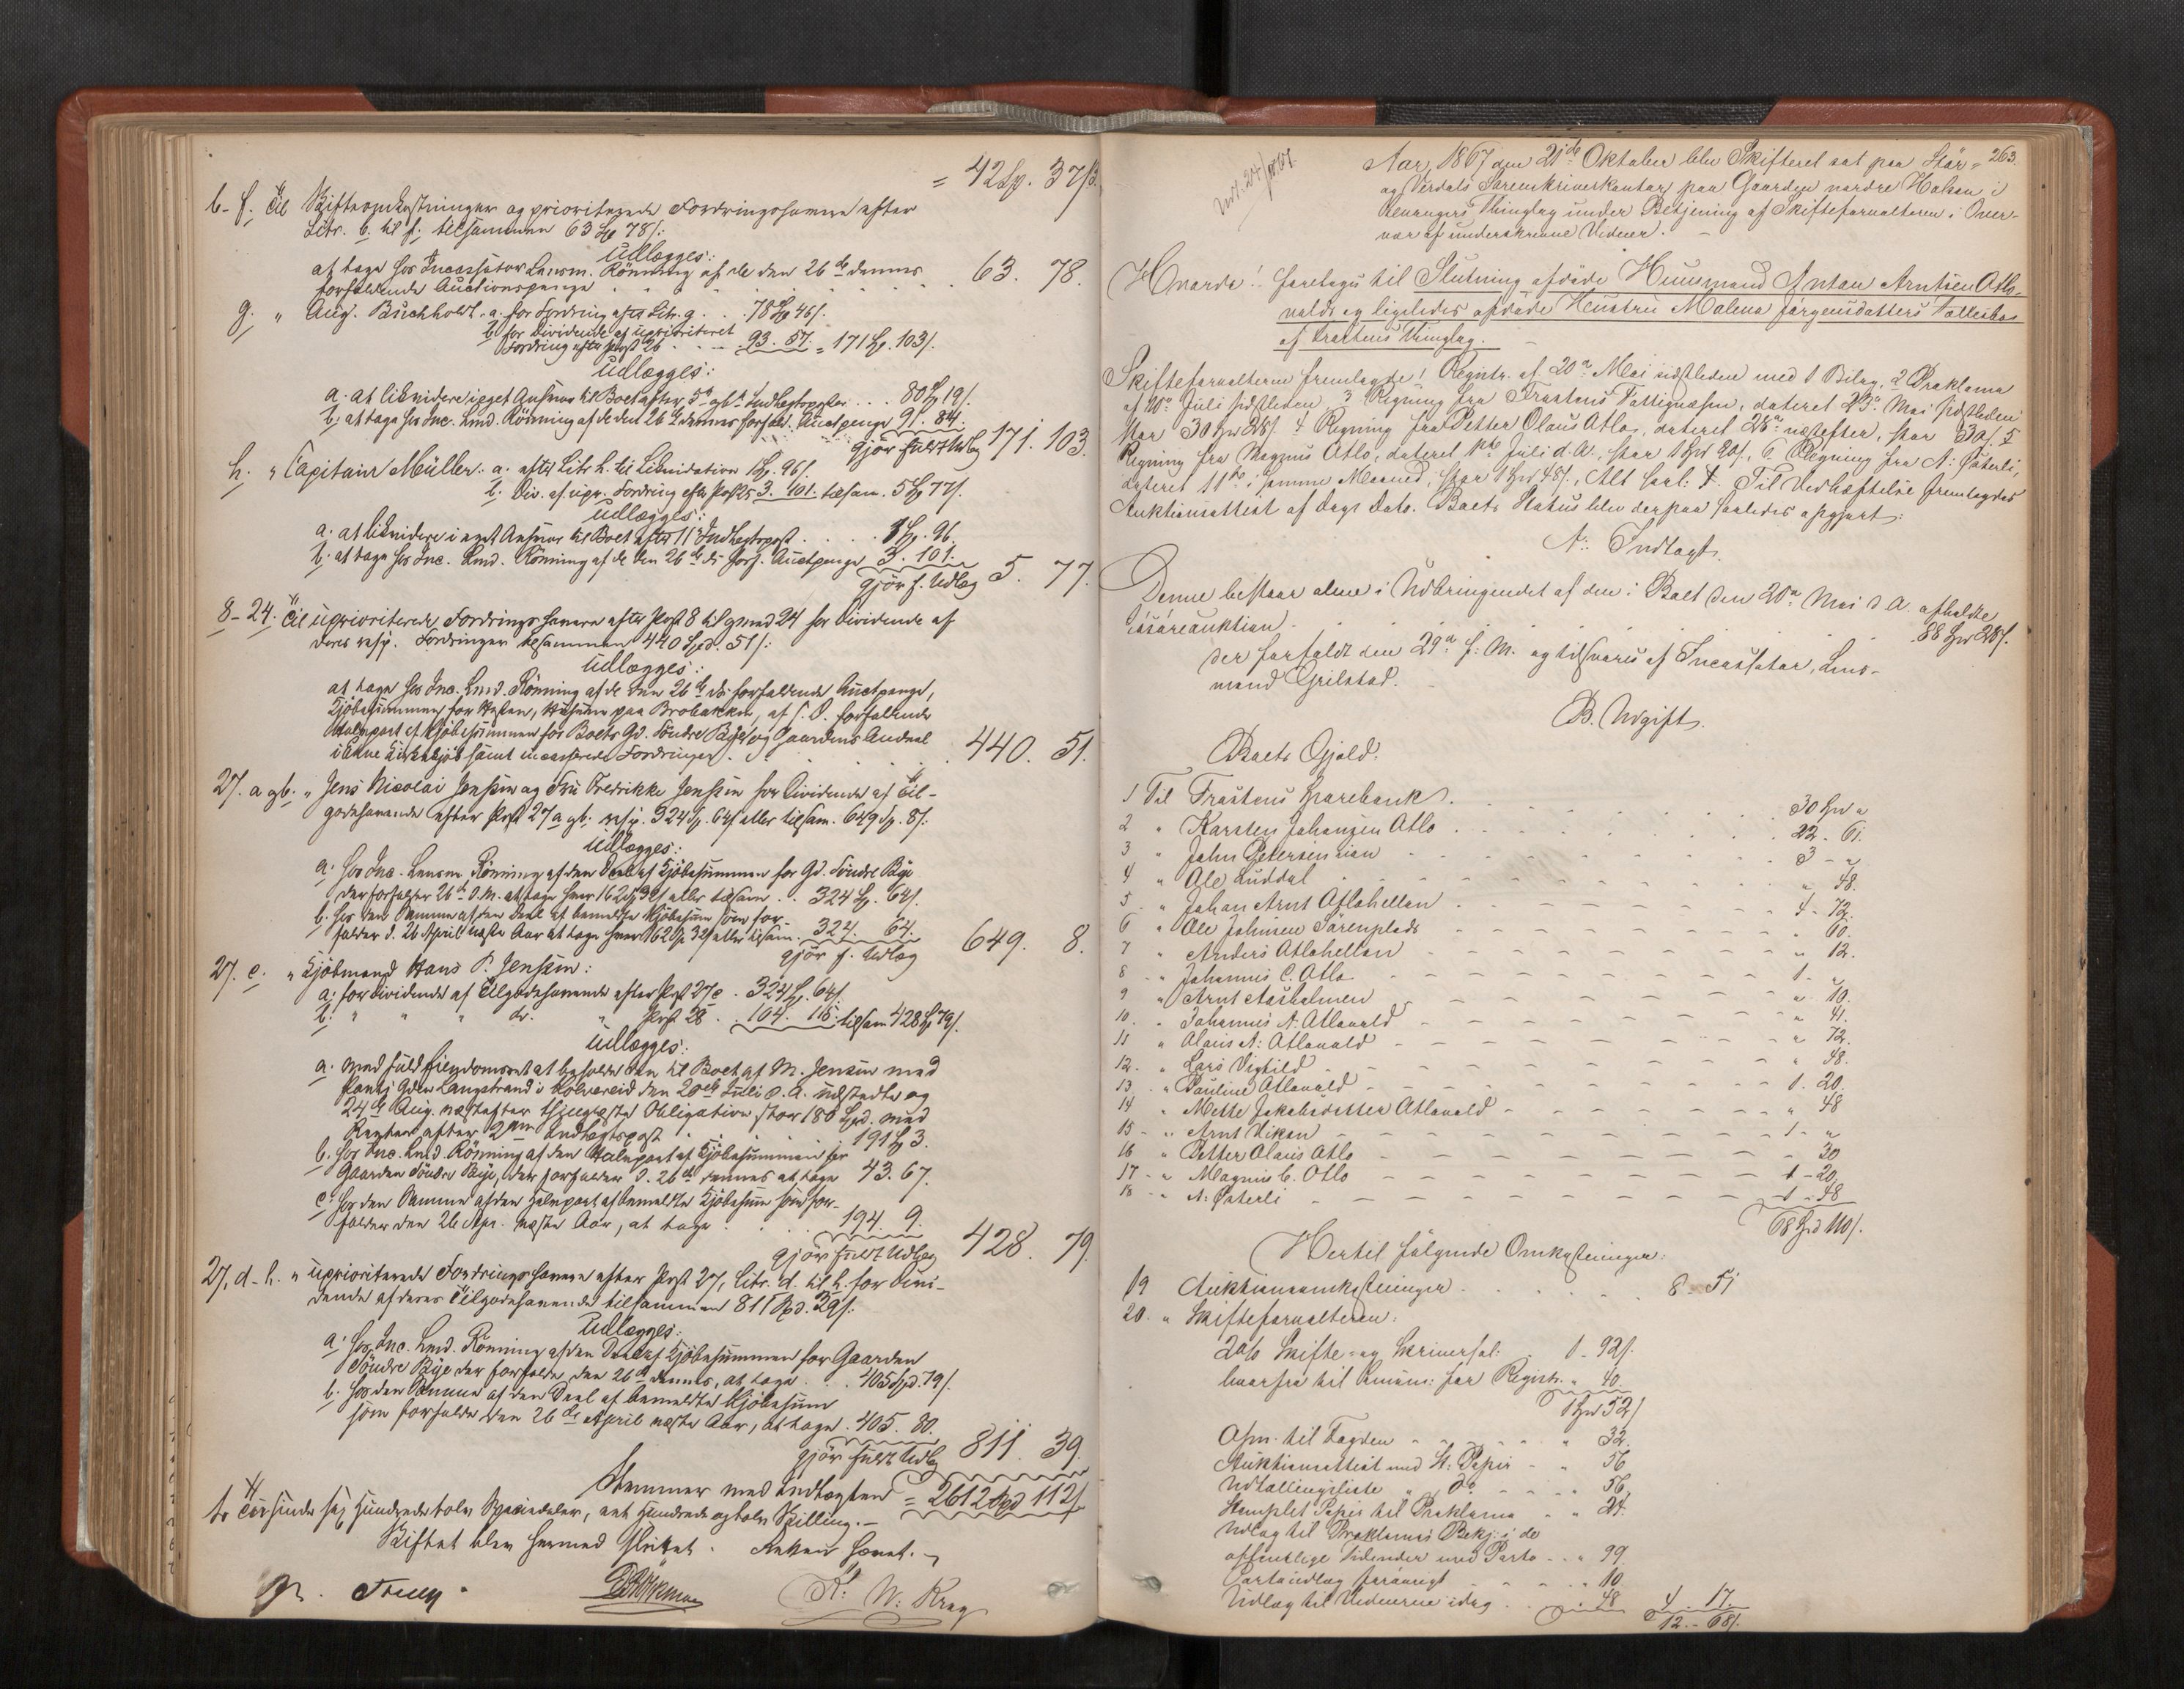 = 42 Sp. 37 ß.
b-f. Til Skifteomkostninger og prioriterede Fordringshavere efter
Litr. b til f: tilsammen 63 Sp 78 ß:
Udlægges:
at tage hos Incassator Lensm. Rönning af de den 26de dennes
forfaldende Auctionspenge . . . 63. 78.
g. " Aug. Buchholdt. a. for Fordring efter Litr. g. . . 78 Sp 46 ß.
b. for Dividende af uprioriteret
Fordring efter Post 26 . . . 93. 57. = 171 Sp. 103 ß.
Udlægges:
a. at likvidere i eget Ansvar til Boet efter 5te og 6te Indtægtsposter . . . 80 Sp 19 ß.
b. at tage hos Inc. Lmd. Rönning af de den 26de dennes forfald. Auctpenge 91. 84.
gjør fuldt Udlæg 171. 103.
h. " Capitain Müller: a. efter Litr. h. til Likvidation 1 Sp. 96 ß.
b. Div. af upr. Fordring efter Post 25 3. 101. tilsam. 5 Sp 77 ß.
Udlægges:
a. at likvidere i eget Ansvar til Boet efter 11te Indtægtspost . . . 1 Sp. 96.
b. at tage hos Inc. Lmd. Rönning af de den 26de ds forf. Auctpenge 3. 101.
gjør f. Udlæg 5. 77.
8-24. Til uprioriterede Fordringshavere efter Post 8 til og med 24 for Dividende af
deres resp. Fordringer tilsammen 440 Spd. 51 ß:
Udlægges:
at tage hos Inc. Lmd. Rönning af de den 26de ds forfaldende Auctpenge,
Kjöbesummen for Huset, Huset paa Brobakken, af s. D. forfaldende
Halvpart af Kjöbesummen for Boets Gd. Söndre Bye og Gaardens Andeel
i Ekne Kirkekjöb samt incasserede Fordringer . . . 440. 51.
27. a og b. " Jens Nicolai Jenssen og Fru Fredrikke Jenssen for Dividende af Til-
godehavende efter Post 27 a og b. resp. 324 Sp. 64 ß eller tilsam. 649 Sp. 8 ß:
Udlægges:
a. hos Inc. Lensm. Rönning af den Deel af Kjöbesummen for Gd. Söndre Bye
der forfalder 26de d. M. at tage hver 162 Sp 32 ß eller tilsam. . . 324 Sp. 64 ß.
b. hos den Samme af den Deel af bemeldte Kjöbesum som for-
falder d. 26 April næste Aar at tage hver 162 Sp 32 ß eller tilsam. 324. 64.
gjør f. Udlæg 649. 8.
27. c. " Kjöbmand Hans P. Jenssen:
a. for Dividende af Tilgodehavende efter Post 27 c. 324 Sp. 64 ß.
b. " " " do. " Post 28 . . 104. 15. tilsam 428 Sp 79 ß.
Udlægges:
a. med fuld Eiendomsret at beholde den til Boet af M. Jensen med
Pant i Gden Langstrand i Kolvereid den 20de Juli d. A. udstedte og
24de Aug. næstefter thinglæste Obligation stor 180 Spd. med
Renter efter 2den Indtægtspost . . . 191 Sp 3.
b. hos Inc. Lmd. Rönning af den Halvpart af Kjöbesummen for
Gaarden Söndre Bye, der forfalder d. 26de dennes at tage 43. 67.
c. hos den Samme af den Halvpart af bemeldte Kjöbesum som for-
falder den 26 Apr. næste Aar, at tage . . . 194. 9.
gjör fuldt Udlæg 428. 79.
27, d-h. " uprioriterede Fordringshavere efter Post 27, Litr. d. til h. for Divi-
dende af deres Tilgodehavende tilsammen 811 Spd. 39 ß.
Udlægges:
a. hos Inc. Lmd. Rönning af den Deel af Kjöbesummen for Gaarden
Söndre Bye der forfalder den 26de dennes, at tage . . . 405 Spd. 79 ß.
b. hos den Samme af den Deel af bemeldte Kjöbesum
som forfalder den 26de April næste Aar, at tage . 405. 80.
gjör fuldt Udlæg 811. 39.
Stemmer med Indtægten = 2612 Spd 112 ß
to Tusinde sex Hundrede tolv Speciedaler, eet Hundrede og tolv Skilling. -
Skiftet blev hermed sluttet. Retten hævet. -
K. W. Krag
263.
Aar 1867 den 21de Oktober blev Skifteret sat paa Stör-
og Verdals Sorenskriverkontor paa Gaarden nordre Halsen i
Thinglag under Betjening af Skifteforvalteren i Over-
vær af underskrevne Vidner. -
Hvorda! foretoges til Slutning afdöde Huusmand Antan Arntsen Atlo-
vald og ligeledes afdöde Hustru Malena Jörgensdatters Fællesbo
af Frostens Thinglag. -
Skifteforvalteren fremlagde 1 Registr. af 20de Mai sidstleden med 1 Bilag, 2 Proklama
af 10de Juli sidstleden 3 Regning fra Frostens Fattigvæsen, dateret 23de Mai sidstleden
stor 30 Spd 28 ß. 4 Regning fra Petter Olaus Atlo, dateret 28de næstefter, stor 30 ß. 5
Regning fra Magnus Atlo, dateret 1ste Juli d. A., stor 1 Spd 20 ß., 6 Regning fra N: Österli,
dateret 11te i samme Maaned, stor 1 Spd 48 ß., Alt saal: . Til Vedhæftelse fremlagdes
Auktionsattest af Dags Dato. Boets Status blev derpaa saaledes opgjort:
A: Indtægt.
Denne bestaar alene i Udbringendet af den i Boet den 20de Mai d. A. afholdte
Lösöreauktion . . . 88 Spd 28 ß.
der forfaldt den 29de f: M. og tilsvares af Incassator, Lens-
mand Grilstad. -
B. Udgift.
Boets Gjeld:
1 Til Frostens Sparebank . . . 30 Spd "
2 " Karsten Johansen Atlo . . . 22 - 61.
3 " John Petersen . . . 3 - "
4 " Ole Luddal . . . " 48.
5 " Johan Arnt Atlohellan . . . 4 - 72.
6 " Ole Johnsen Sörenplads . . . " 60.
7 " Anders Atlohellan . . . " 12.
8 " Johannes C. Atlo . . . 1 - "
9 " Arnt Aasholmen . . . " 10.
10. " Johannes A. Atlovald . . . " 41.
11 " Olaus A: Atlovald . . . " 72.
12. " Lars Vigtild . . . " 48.
13. " Pauline Atlovald . . . 1. 20.
14 " Mette Jakobsdatter Atlovald . . . " 48
15 - " Arnt Viken . . . 1 - "
16 " Petter Olaus Atlo . . . - 30
17 - " Magnus C. Atlo . . . 1 - 20.
18 - " N: Österli . . . 1 - 48
68 Spd 110 ß.
Hertil fölgende Omkostninger:
19 Auktionsomkostninger . . . 8 - 51
20. " Skifteforvalteren:
2 o/o Skifte- og Skriversal: . 1 - 92 ß.
hvorfra til for Registr. " 40.
1 Spd 52 ß
Opn. til Fogden . . . " 32.
Auktionsattest med St: Papir - " 56
Udtællingsliste " Do - - - " 56.
Stemplet Papir til Proklama " " 24.
Udlæg til Proklamas Bekj: i de
offentlige Tidender med Porto - . " 99.
Portoudlæg forövrigt - . . " 10.
Udlæg til Vidnerne idag . . . 48 4 - 17.
12 - 68 ß.